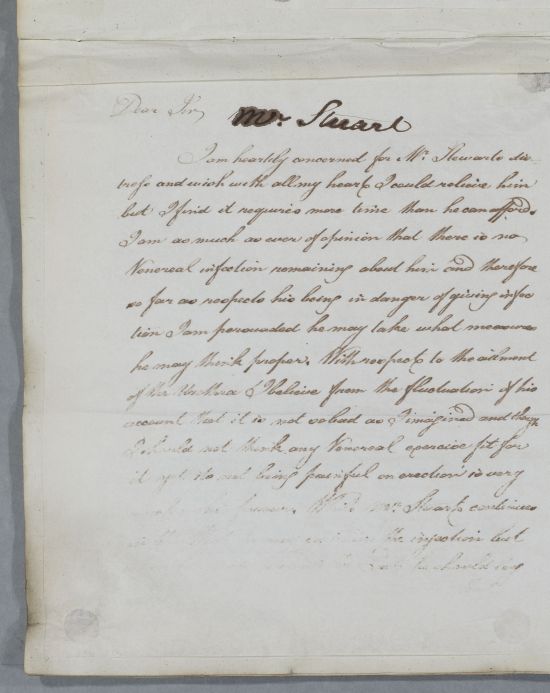 Dear Sir,
Mr. Stuart
I am heartily concerned for Mr. Stewarts dis-
tress and wish with all my heart I could relieve him
but I find it requires more time than he can afford.
I am as much as ever of opinion that there is no
Venereal infection remaining about him and therefore
so far as respects his being in danger of giving infec
tion I am persuaded he may take what measures
he may think proper. With respect to the ailment
of the Urethra I believe from the fluctuation of his
account that it is not so bad as I imagined and though
I should not think any Venereal exercise fit for
it yet its not being painful on erection is very
Mr. Stuart continues
the injection but
he should